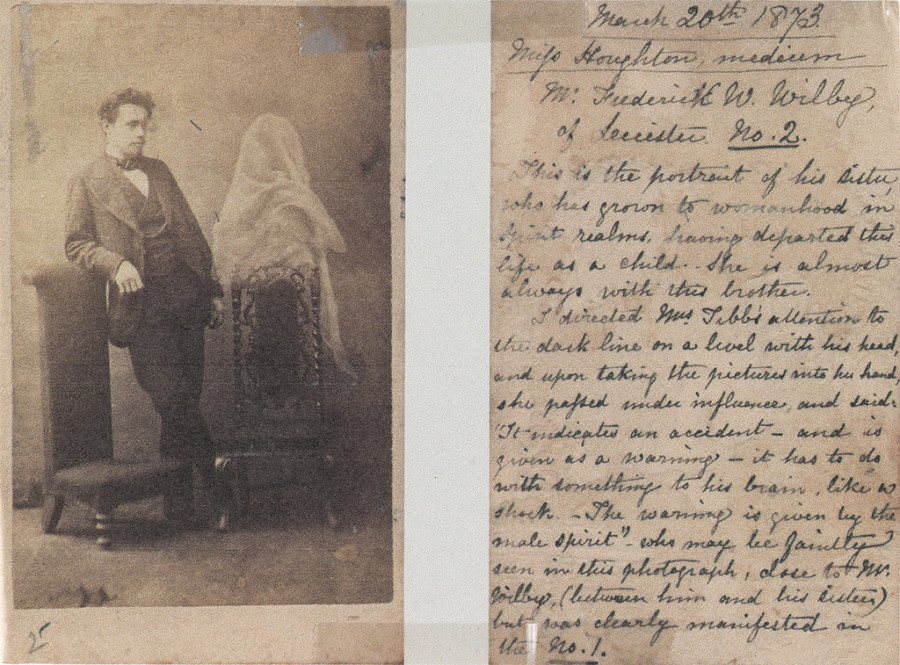 March 20th 1873
Miss Houghton, medium
Mr. Frederick W. Wilbey,
of Leicester. No. 2.
This is the portrait of his sister
who has grown to womanhood in
spirit realms, having departed this
life as a child. She is almost
always with this brother.
I directed Mrs Tebb's attention to
the dark line on a level with his head,
and upon taking the pictures into her hand,
she passed under influence, and said:
"It indicates an accident – and is
given as a warning – it has to do
with something to his brain, like a
shock. – The warning is given by the
male spirit" – who may be faintly
seen in this photograph, close to Mr.
Wilbey, (between him and his sister)
but was clearly manifested in
the No. 1.
25